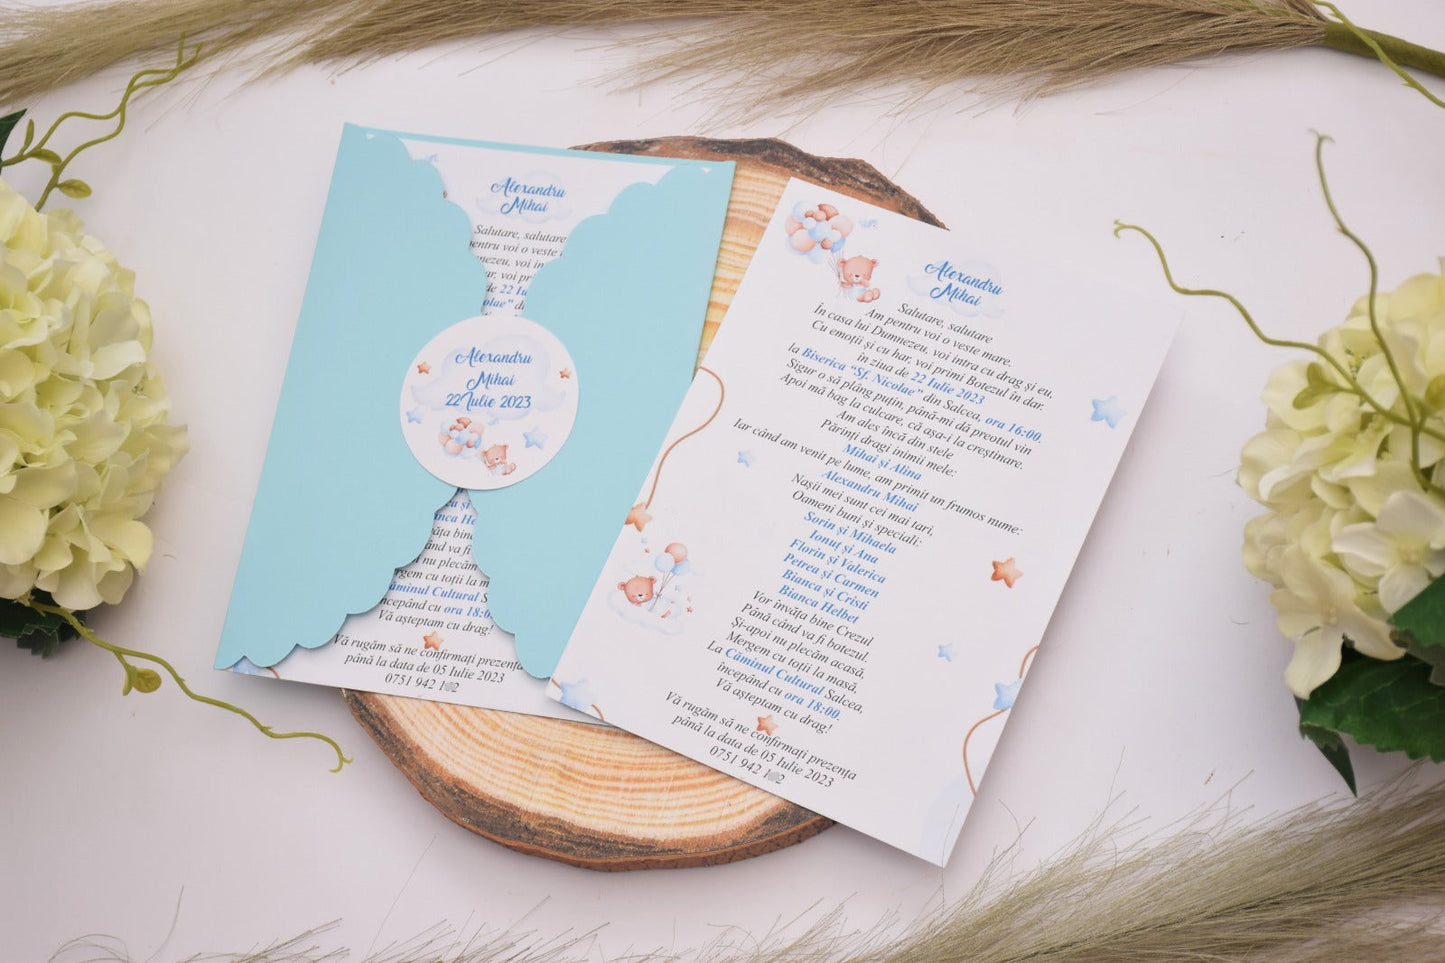 Alexandru
Mihai
Salutare, salutare
pentru voi o veste
voi in
har, voi
de 22
din
Alexandru
Mihai
22 Iulie 2023
și
învăța bine
când va fi
nu plecăm
Mergem cu toții la m
Căminul Cultural S
începând cu ora 18:0
Vă așteptam cu drag!
Vă rugăm să ne confirmați prezența
până la data de 05 Iulie 2023
0751 942 1 2
Alexandru
Mihai
Salutare, salutare
Am pentru voi o veste mare.
În casa lui Dumnezeu, voi intra cu drag și eu,
Cu emoții și cu har, voi primi Botezul în dar.
în ziua de 22 Iulie 2023
la Biserica "Sf. Nicolae" din Salcea, ora 16:00.
Sigur o să plâng puțin, până-mi dă preotul vin
Apoi mă bag la culcare, că așa-i la creștinare.
Am ales încă din stele
Părinți dragi inimii mele:
Mihai și Alina
Iar când am venit pe lume, am primit un frumos nume:
Alexandru Mihai
Nașii mei sunt cei mai tari,
Oameni buni și speciali:
Sorin și Mihaela
Ionuț și Ana
Florin și Valerica
Petrea și Carmen
Bianca și Cristi
Bianca Helbet
Vor învăța bine Crezul
Până când va fi botezul.
Și-apoi nu plecăm acasă,
Mergem cu toții la masă,
La Căminul Cultural Salcea,
începând cu ora 18:00.
Vă așteptam cu drag!
Vă rugăm să ne confirmați prezența
până la data de 05 Iulie 2023
0751 942 1 2